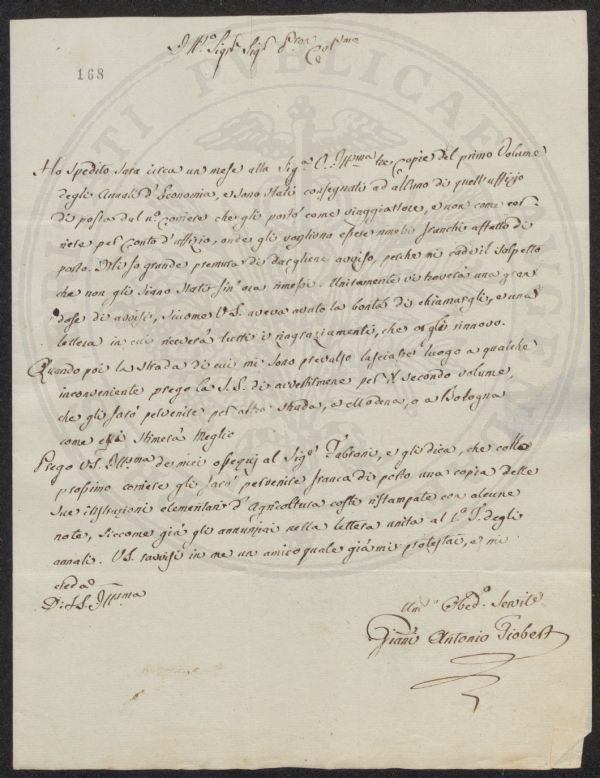 Ill.mo Sig.r Sig.r Pron. Col.mo
168
Ho spedito sarà circa un mese alla Sig.a V. Ill.ma tre Copie del primo Volume
degli Annali d'Economia, e sono stati consegnati ad alcuno di quest'uffizio
di posta dal n.o coriere che gli portò come viaggiattore, e non come cor-
riere per Conto d'uffizio, onde gli vogliono essere rimessi franchi affatto di
porto. Mi fo grande premura di dargliene avviso, perche mi cade il sospetto
che non gli siano stati sin'ora rimessi. Unitamente vi troverà una gran
dose di avvisi, siccome V.S. aveva avuta la bontà di chiamargli, e una
lettera in cui riceverà tutti i ringraziamenti, che or gli rinnovo.
Quando poi la strada di cui mi sono prevalso lasciasse luogo a qualche
inconveniente prego la S.S. di avvertirmene per il secondo volume,
che gli farò pervenire per altra strada, a Modena, o a Bologna
come essa stimerà meglio
Prego V.S. Ill.ma de miei ossequj al Sig.r Fabroni, e gli dica, che colla
prossimo coriere gli farò pervenire franca di posto una copia delle
sue istruzioni elementari d'Agricoltura costì ristampate con alcune
note, siccome già gli annunziai nella lettera unita al 1.o T. degli
annali. V.S. ravvisi in me un amico quale già mi protestai, e mi
creda
Di V.S. Ill.ma
Um.o Obed.o Servit.e
Gian Antonio Giobert
PVBLICAE